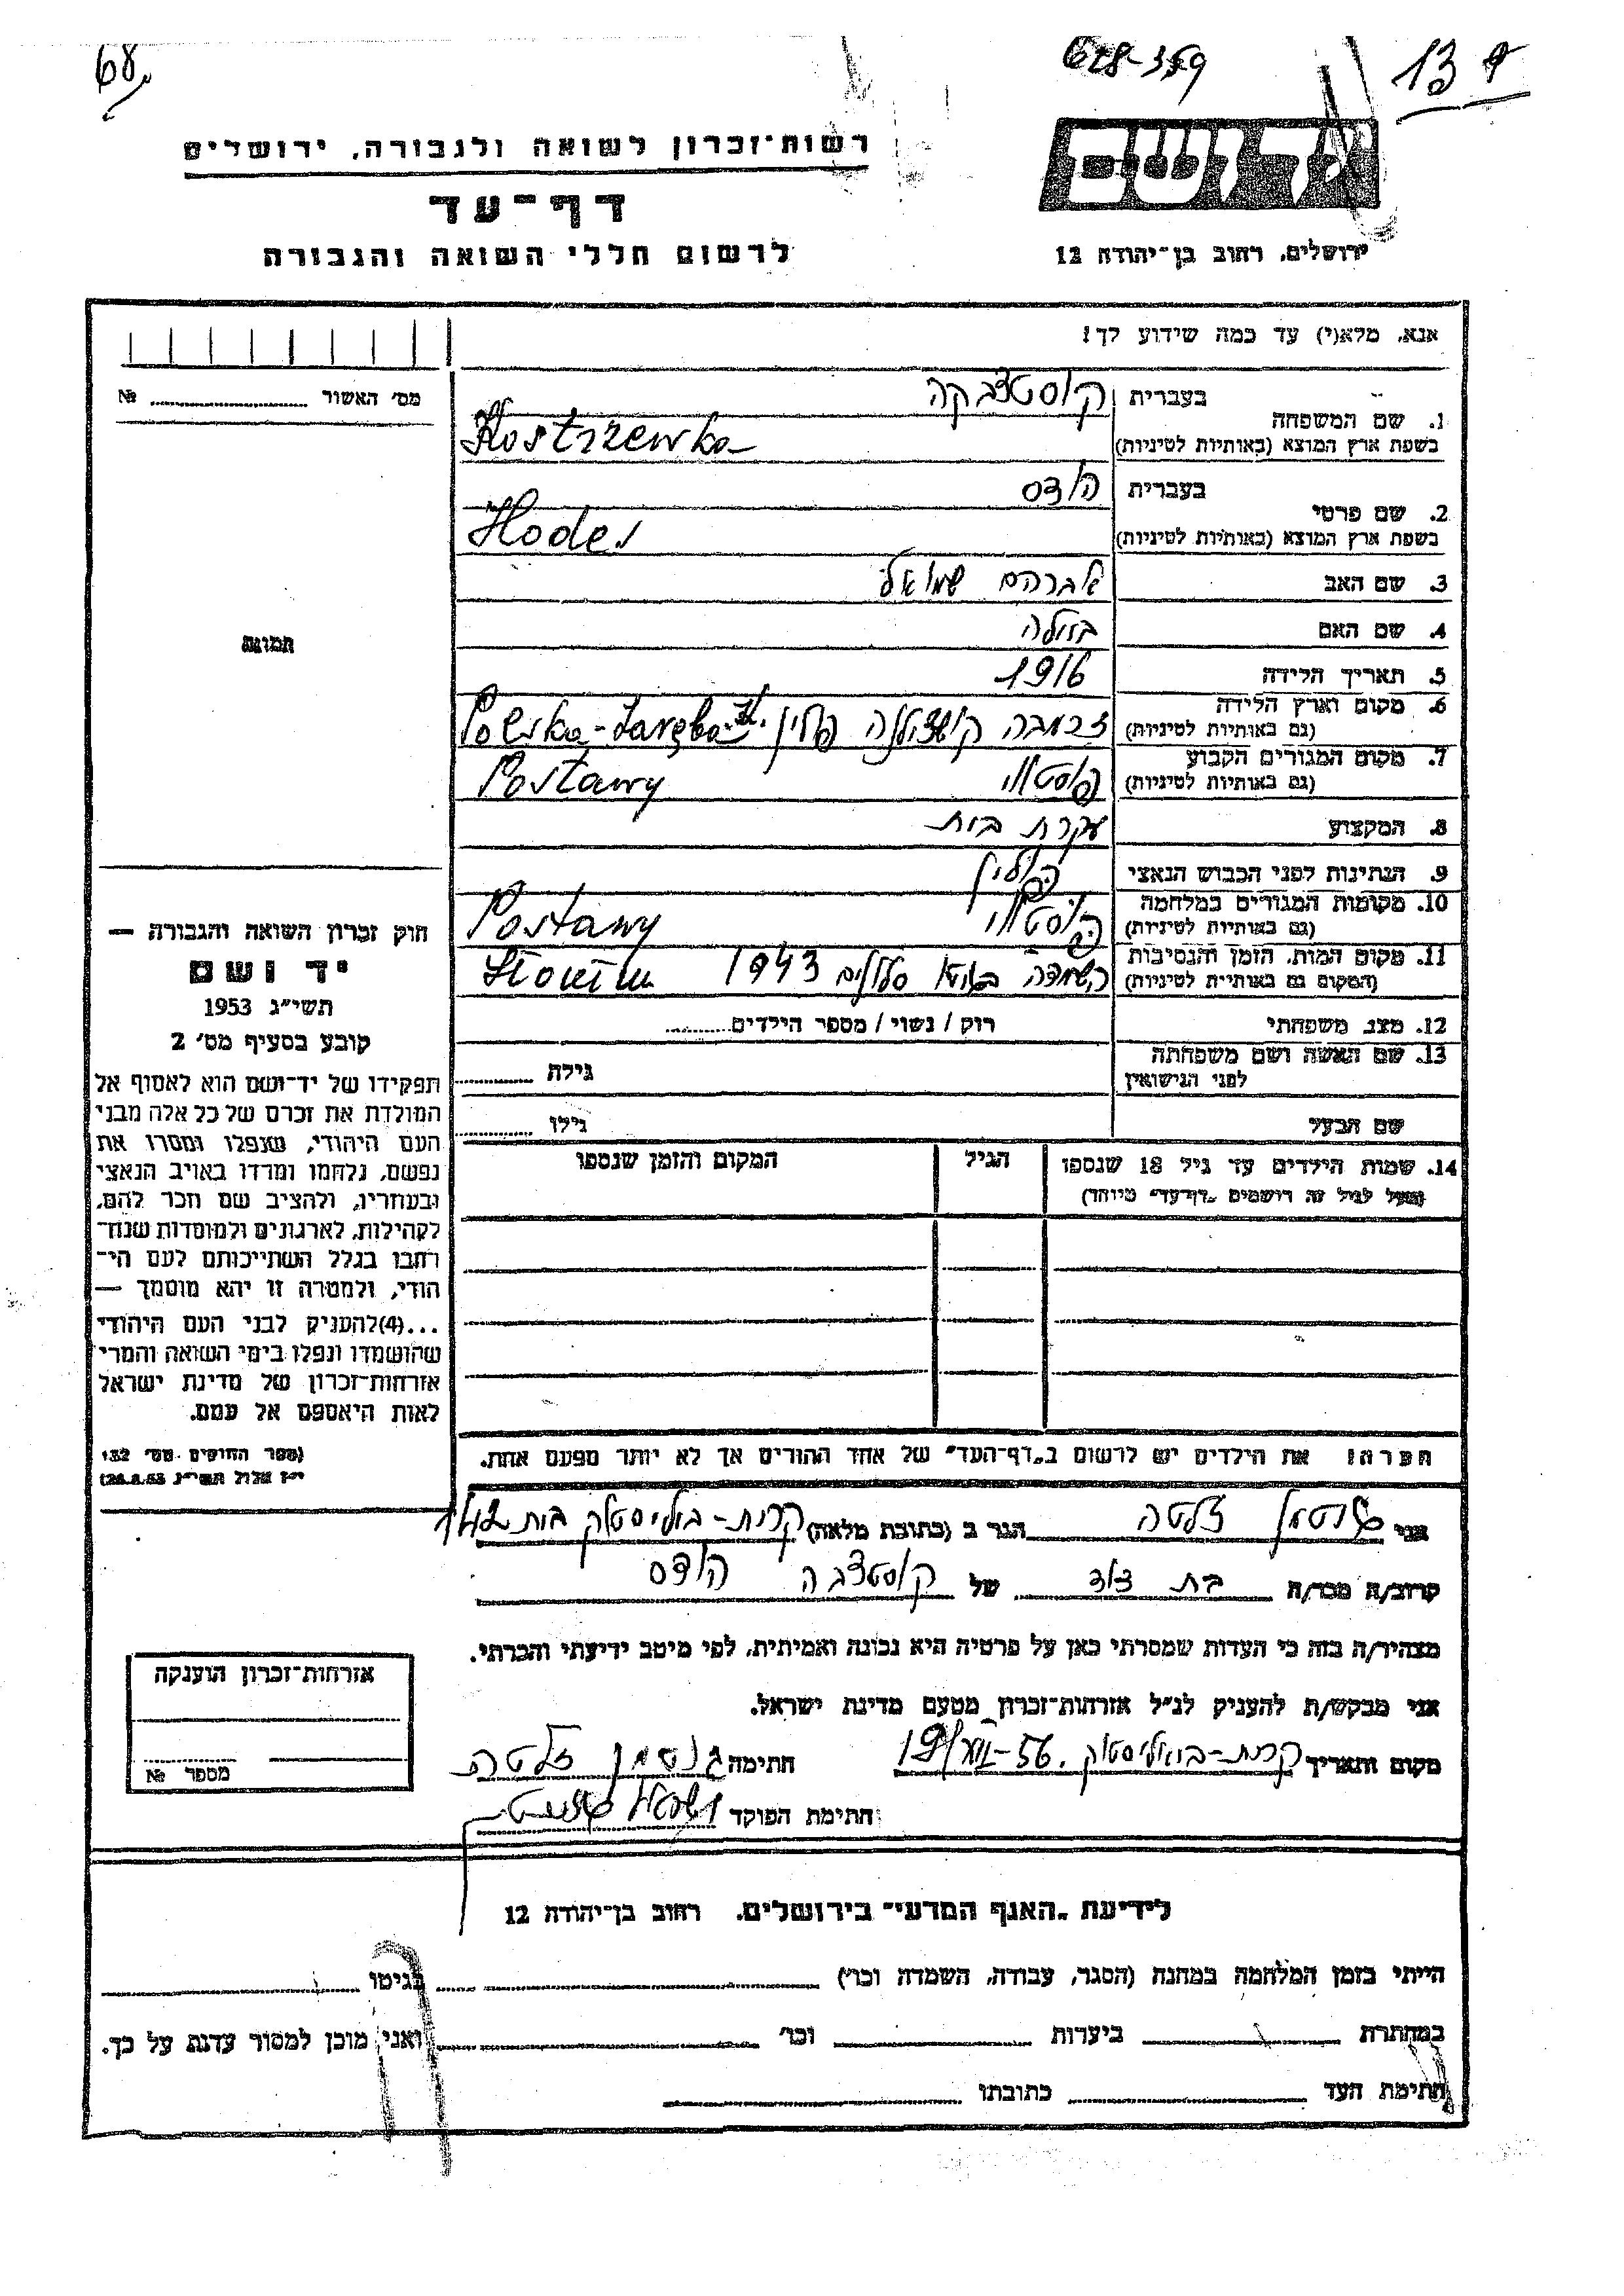 68
628-359
13
רשות־זכרון לשואה ולגבורה, ירושלים
דף־עד
לרשום חללי השואה והגבורה
ירושלים, רחוב בן־יהודה 12
אנא, מלא(י) עד כמה שידוע לך!
מס' האשור № 
1. שם המשפחה בעברית קוסטצבקה
בשפת ארץ המוצא (באותיות לטיניות) Kostrzewka
2. שם פרטי בעברית הודס
בשפת ארץ המוצא (באותיות לטיניות) Hodes
3. שם האב אברהם שמואל
4. שם האם
תמונה
5. תאריך הלידה 1916
6. מקום וארץ הלידה (גם באותיות לטיניות) פולין Polska-Zaręba
7. מקום המגורים הקבוע (גם באותיות לטיניות) פוסטוי Postawy
8. המקצוע עקרת בית
9. הנתינות לפני הכבוש הנאצי פולין
10. מקומות המגורים במלחמה (גם באותיות לטיניות) פוסטוי Postawy
11. מקום המות, הזמן והנסיבות (המקום גם באותיות לטיניות) השמדה 1943
12. מצב משפחתי רוק / נשוי / מספר הילדים
13. שם האשה ושם משפחתה לפני הנישואין גילה
שם הבעל גילו
14. שמות הילדים עד גיל 18 שנספו הגיל המקום והזמן שנספו
(מעל לגיל זה רושמים "דף־עד" מיוחד)
חוק זכרון השואה והגבורה —
יד ושם
תשי"ג 1953
קובע בסעיף מס' 2
תפקידו של יד־ושם הוא לאסוף אל
המולדת את זכרם של כל אלה מבני
העם היהודי, שנפלו ומסרו את
נפשם, נלחמו ומרדו באויב הנאצי
ובעוזריו, ולהציב שם וזכר להם,
לקהילות, לארגונים ולמוסדות שנח־
רבו בגלל השתייכותם לעם הי־
הודי, ולמטרה זו יהא מוסמך —
...(4)להעניק לבני העם היהודי
שהושמדו ונפלו בימי השואה והמרי
אזרחות־זכרון של מדינת ישראל
לאות היאספם אל עמם.
(ספר החוקים מס' 132
י"ז אלול תשי"ג 28.8.53)
הערה: את הילדים יש לרשום ב"דף־העד" של אחד ההורים אך לא יותר מפעם אחת.
אני גוטמן זלטה הגר ב (כתובת מלאה) קרית-ביאליסטוק בית 142
קרוב/ה מכר/ה בת דוד של קוסטצבה הודס
מצהיר/ה בזה כי העדות שמסרתי כאן על פרטיה היא נכונה ואמיתית, לפי מיטב ידיעתי והכרתי.
אני מבקש/ת להעניק לנ"ל אזרחות־זכרון מטעם מדינת ישראל.
מקום ותאריך קרית-ביאליסטוק 19/XII-56. חתימה גוטמן זלטה
חתימת הפוקד
אזרחות־זכרון הוענקה
מספר №
לידיעת "האגף המדעי" בירושלים, רחוב בן־יהודה 12
הייתי בזמן המלחמה במחנה (הסגר, עבודה, השמדה וכו') בגיטו
במחתרת ביערות וכו' ואני מוכן למסור עדות על כך.
חתימת העד כתובתו